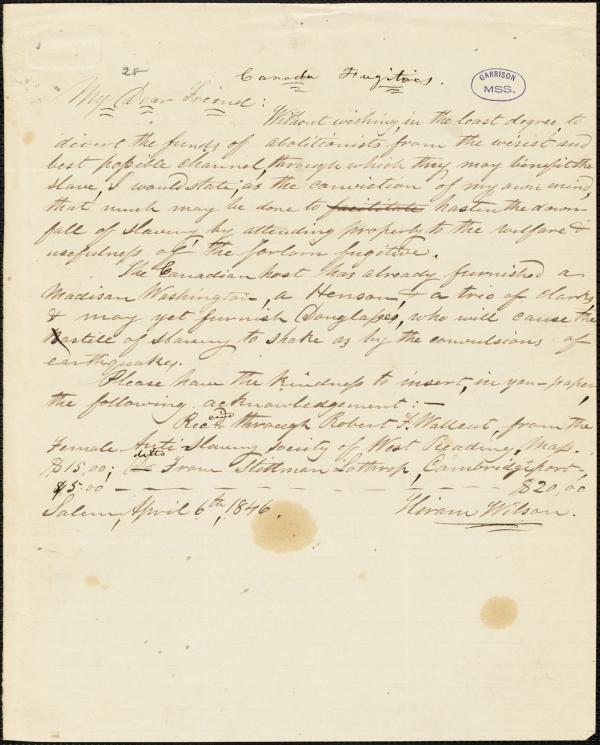 28
Canada Fugitives.
GARRISON
MSS.
My Dear Friend:
Without wishing, in the least degree, to
divert the funds of abolitionists from the wisest and
best possible channel, through which they may benefit the
slave, I would state, as the conviction of my own mind,
that much may be done to facilitate hasten the down-
fall of Slavery, by attending properly to the welfare &
usefulness of the forlorn fugitive.
The Canadian host has already furnished a
Madison Washington, a Henson, & a trio of Clarks,
& may yet furnish Douglasses, who will cause the
Bastille of Slavery to shake as by the convulsions of
earthquakes.
Please have the kindness to insert, in your paper,
the following acknowledgement: —
Recd through Robert F. Wallcut, from the
Female Anti-Slavery Society of West Reading, Mass.
$15,00; ditto From Stillman Lothrop, Cambridgeport,
$5.00 — — — — — — — — — — $20,00
Salem, April 6th, 1846. Hiram Wilson.